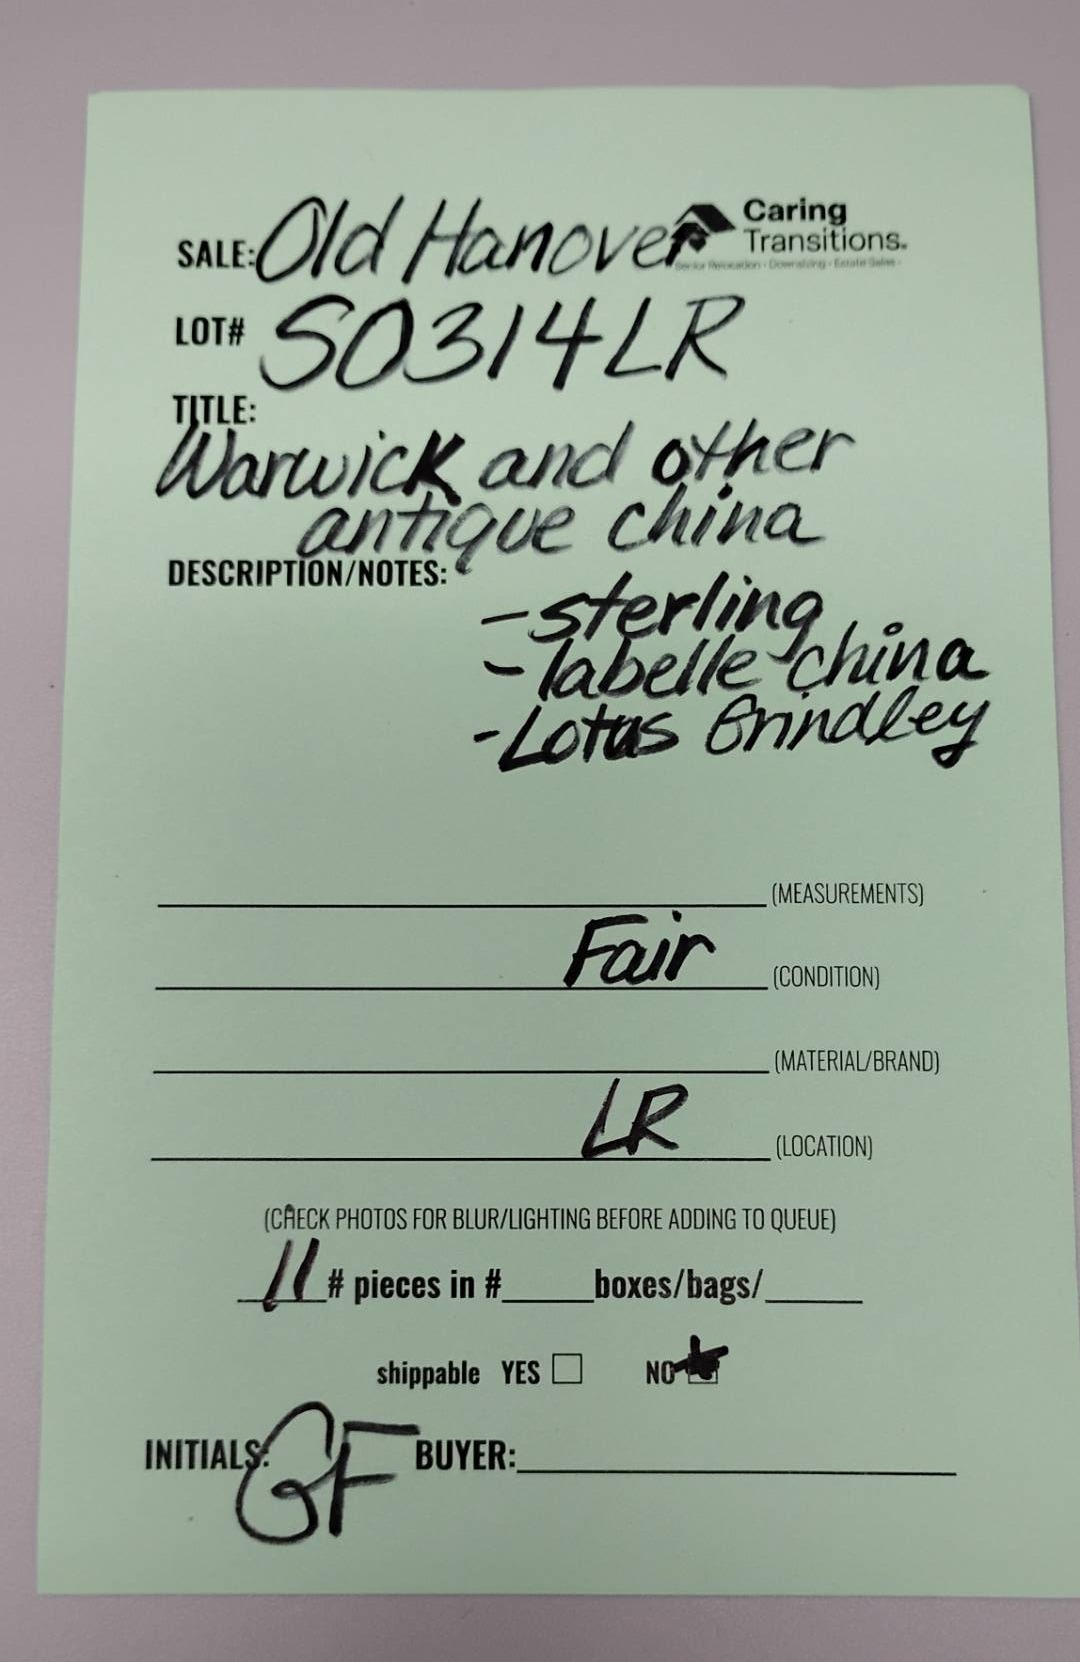 SALE: Old Hanover
Caring
Transitions.
Senior Relocation · Downsizing · Estate Sales
LOT# SO314LR
TITLE:
Warwick and other
antique china
DESCRIPTION/NOTES:
- sterling
- labelle china
- Lotus Grindley
(MEASUREMENTS)
Fair (CONDITION)
(MATERIAL/BRAND)
LR (LOCATION)
(CHECK PHOTOS FOR BLUR/LIGHTING BEFORE ADDING TO QUEUE)
11 # pieces in #_____boxes/bags/_____
shippable YES ☐ NO ☒
INITIALS: GF BUYER: